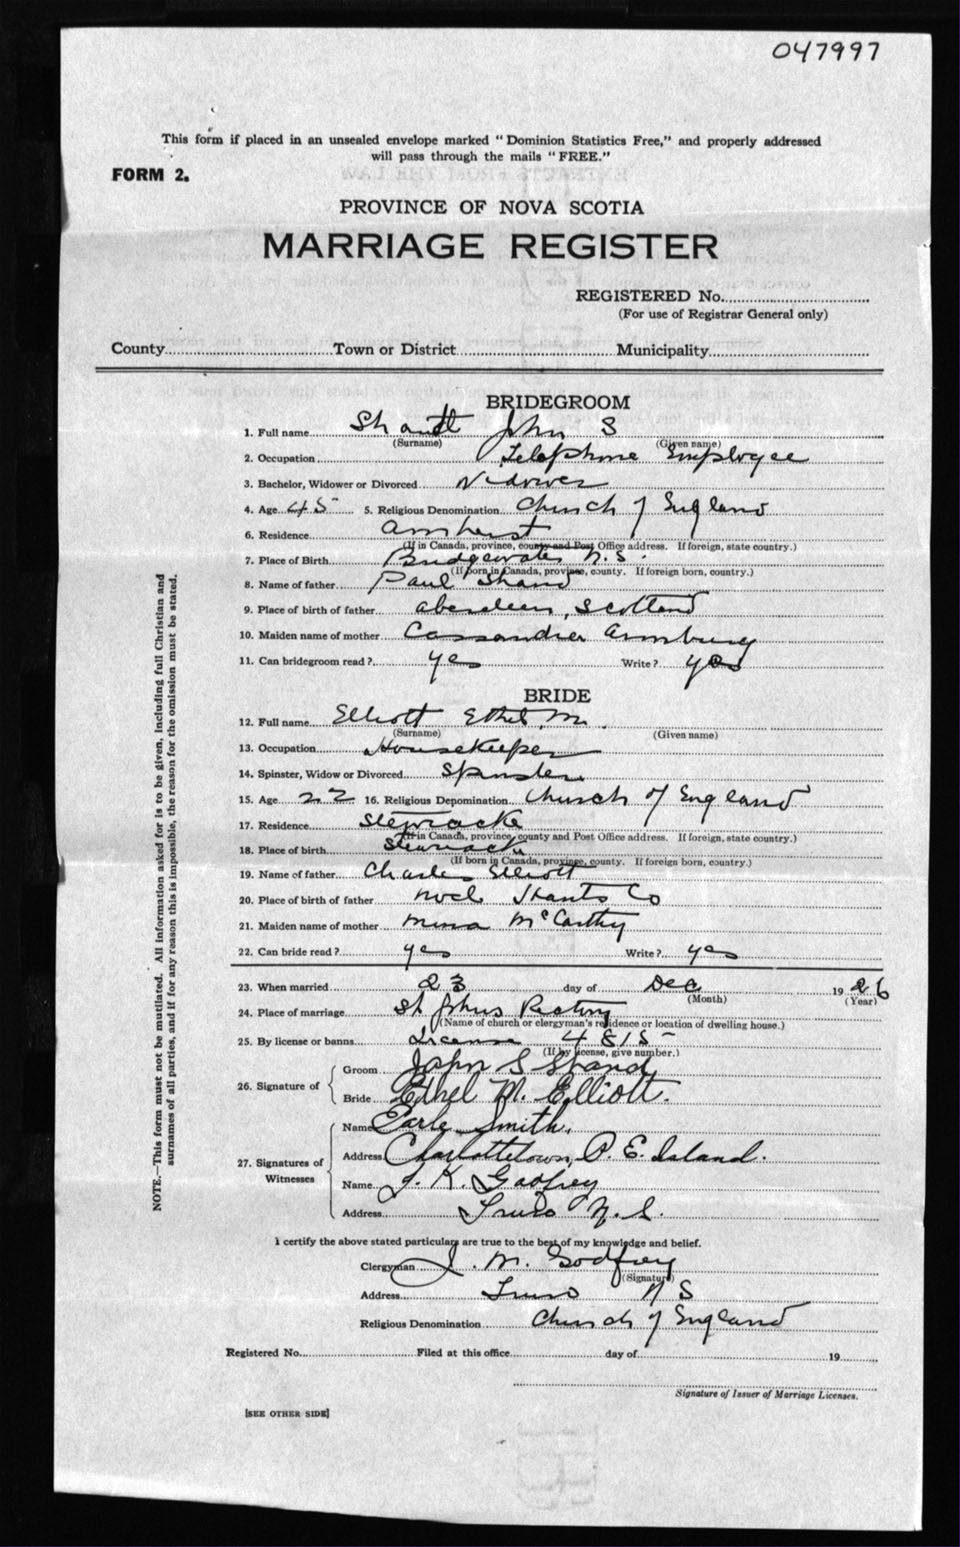 047997
This form if placed in an unsealed envelope marked "Dominion Statistics Free," and properly addressed
will pass through the mails "FREE."
FORM 2.
PROVINCE OF NOVA SCOTIA
MARRIAGE REGISTER
REGISTERED No.
(For use of Registrar General only)
County Town or District Municipality
BRIDEGROOM
1. Full name John S
(Surname) (Given name)
2. Occupation Telephone Employee
3. Bachelor, Widower or Divorced Widower
4. Age 45 5. Religious Denomination Church of England
6. Residence Amherst
(If in Canada, province, county and Post Office address. If foreign, state country.)
7. Place of Birth Bridgewater N.S
(If born in Canada, province, county. If foreign born, country.)
8. Name of father Paul Shand
9. Place of birth of father Aberdeen, Scotland
10. Maiden name of mother
11. Can bridegroom read? yes Write? yes
BRIDE
12. Full name Elliott Ethel M.
(Surname) (Given name)
13. Occupation Housekeeper
14. Spinster, Widow or Divorced Spinster
15. Age 22 16. Religious Depomination Church of England
17. Residence Stewiacke
(If in Canada, province, county and Post Office address. If foreign, state country.)
18. Place of birth Stewiacke
(If born in Canada, province, county. If foreign born, country.)
19. Name of father Charles Elliott
20. Place of birth of father Noel Hants Co
21. Maiden name of mother McCarthy
22. Can bride read? yes Write? yes
23. When married 23 day of Dec 1926
(Month) (Year)
24. Place of marriage St Johns Rectory
(Name of church or clergyman's residence or location of dwelling house.)
25. By license or banns License 4815
(If by license, give number.)
26. Signature of
Groom John S Shand
Bride Ethel M. Elliott.
27. Signatures of Witnesses
Name Earle Smith.
Address Charlottetown, P. E. Island.
Name J. K. Godfrey
Address Truro N. S.
I certify the above stated particulars are true to the best of my knowledge and belief.
Clergyman J. M. Godfrey
(Signature)
Address Truro N S
Religious Denomination Church of England
Registered No. Filed at this office day of 19
Signature of Issuer of Marriage Licenses.
[SEE OTHER SIDE]
NOTE.—This form must not be mutilated. All information asked for is to be given, including full Christian and
surnames of all parties, and if for any reason this is impossible, the reason for the omission must be stated.